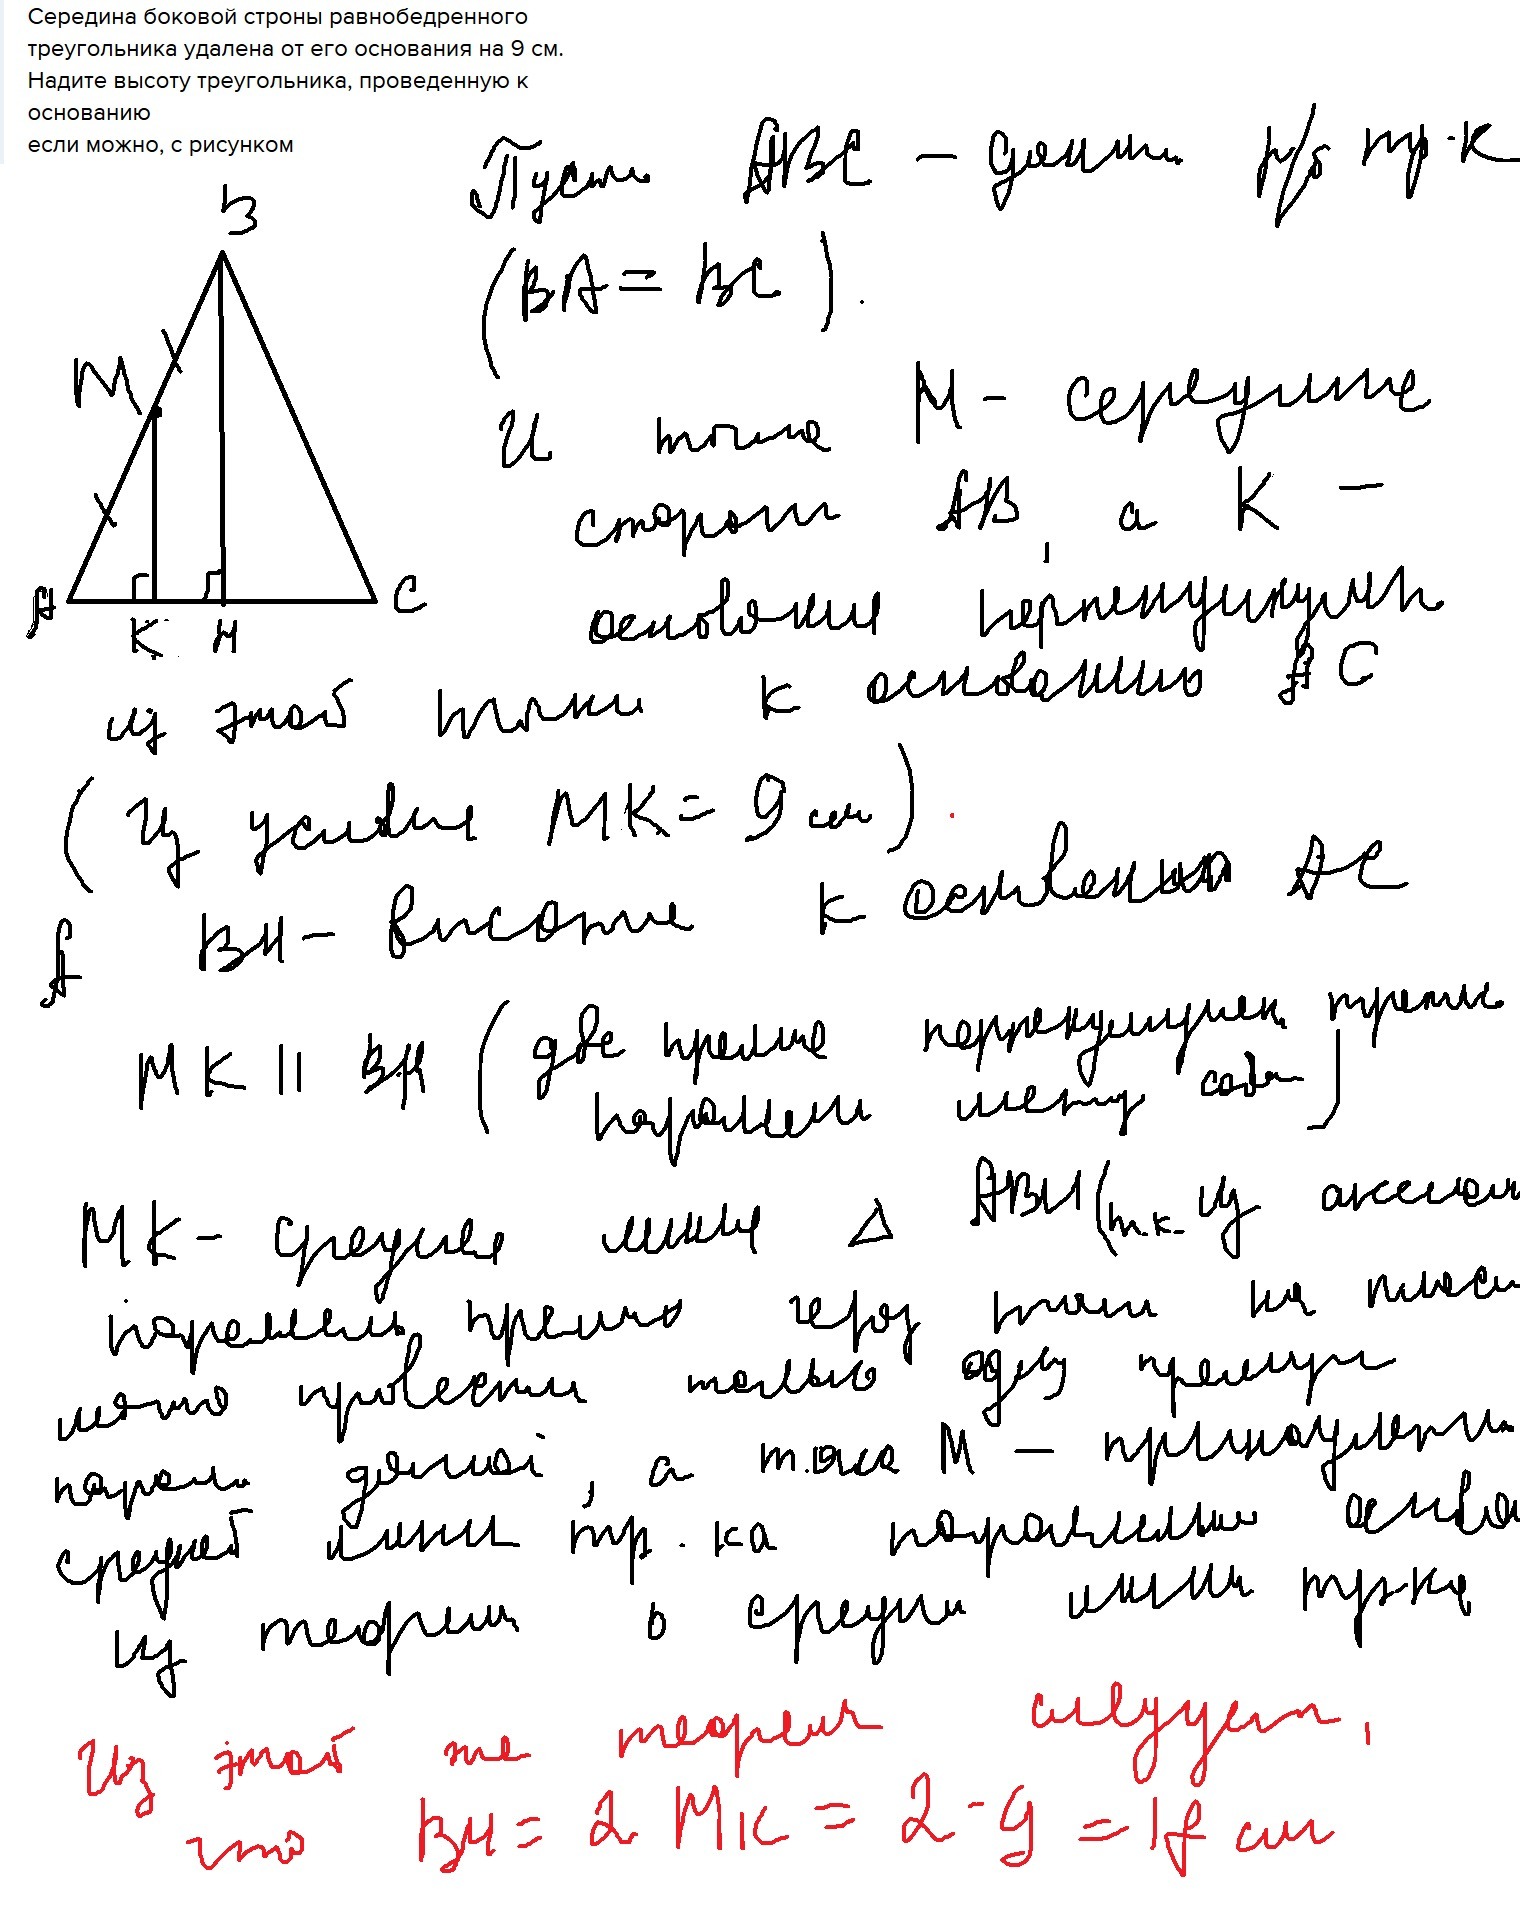 Середина боковой строны равнобедренного
треугольника удалена от его основания на 9 см.
Надите высоту треугольника, проведенную к
основанию
если можно, с рисунком
B
Пусть ABC - данный р/б тр-к
(BA = BC).
M
И точка M - середина
стороны AB, а K -
A K H C
основание перпендикуляра
из этой точки к основанию AC
(Из условия MK = 9 см).
А BH - высота к основанию AC
MK || BH (две прямые перпендикулярн третьей
параллельны между собой)
MK - средняя линия △ ABH (т.к. из аксиомы
параллель прямых через точку на плоск
можно провести только одну прямую
паралл данной, а точка M - принадлежит
средней линии тр-ка параллельной основа
из теоремы о средней линии тр-ка
Из этой же теоремы следует,
что BH = 2 MK = 2 · 9 = 18 см